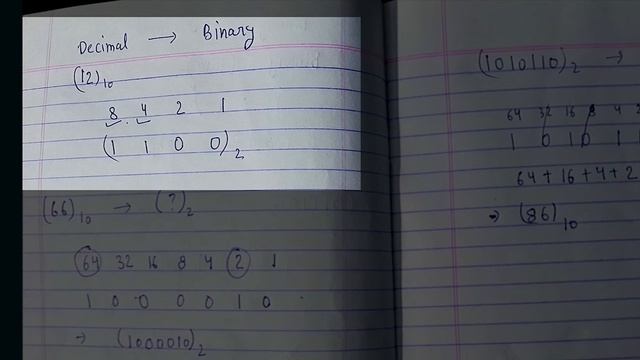 Decimal → Binary
(12)10
8 4 2 1
(1 1 0 0)2
(66)10 → (?)2
64 32 16 8 4 2 1
1 0 0 0 0 1 0
→ (1000010)2
(1010110)2 →
64 32 16 8 4 2
1 0 1 0 1 1
64+16+4+2
→ (86)10